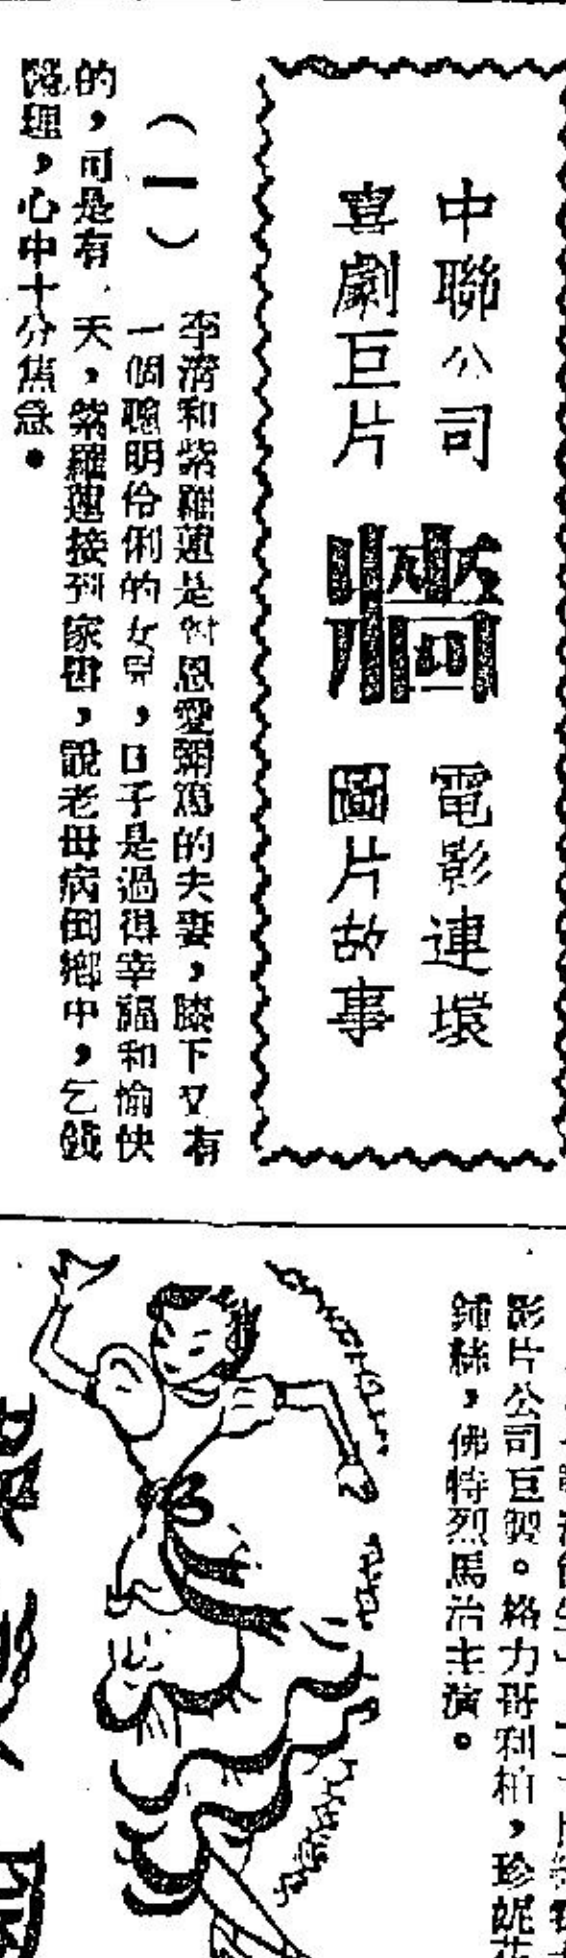 中聯公司
喜劇巨片
牆
電影連環
圖片故事
(一)
李清和紫羅蓮是對恩愛彌篤的夫妻,膝下又有
一個聰明伶俐的女兒,日子是過得幸福和愉快
的,可是有一天,紫羅蓮接到家書,說老母病倒鄉中,乞錢
醫理,心中十分焦急。
影片公司巨製。格力哥利柏,珍妮
鍾絲,佛特烈馬治主演。